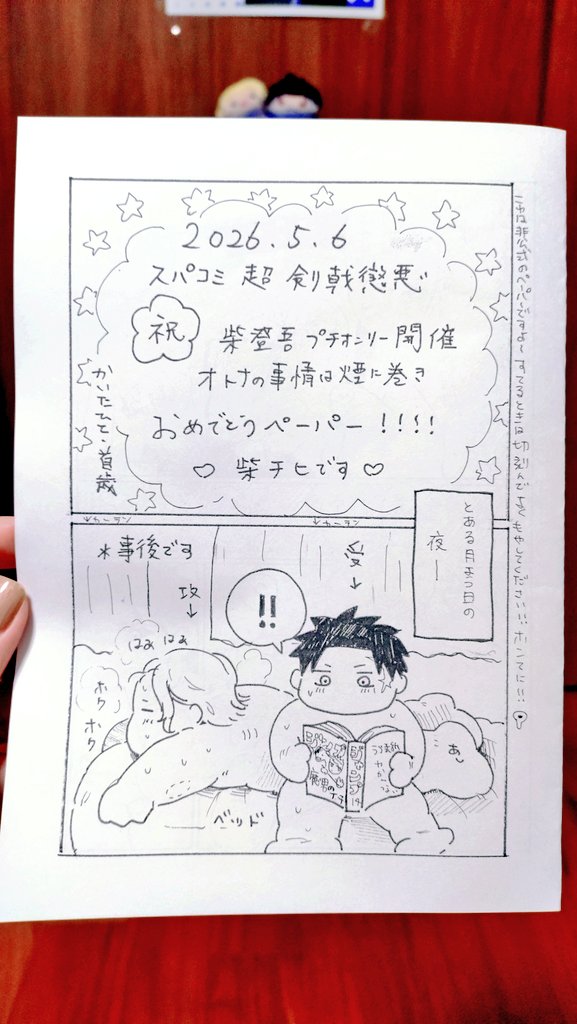 2026.5.6
スパコミ 超 剣戟懲悪
祝
柴登吾 プチオンリー開催
オトナの事情は煙に巻き
おめでとうペーパー!!!!
♡ 柴チヒです ♡
かいたひと・首歳
これは非公式のペーパーですよ〜 すてるときは切刻んでよくもやしてください!! ホンマに!!
とある月まつ日の
夜ー
↓カーテン
↓カーテン
*事後です
受
↓
攻
↓
!!
はぁ はぁ
ホク
ホク
ジャンプ
ジャンプ
14
あし
ベッド